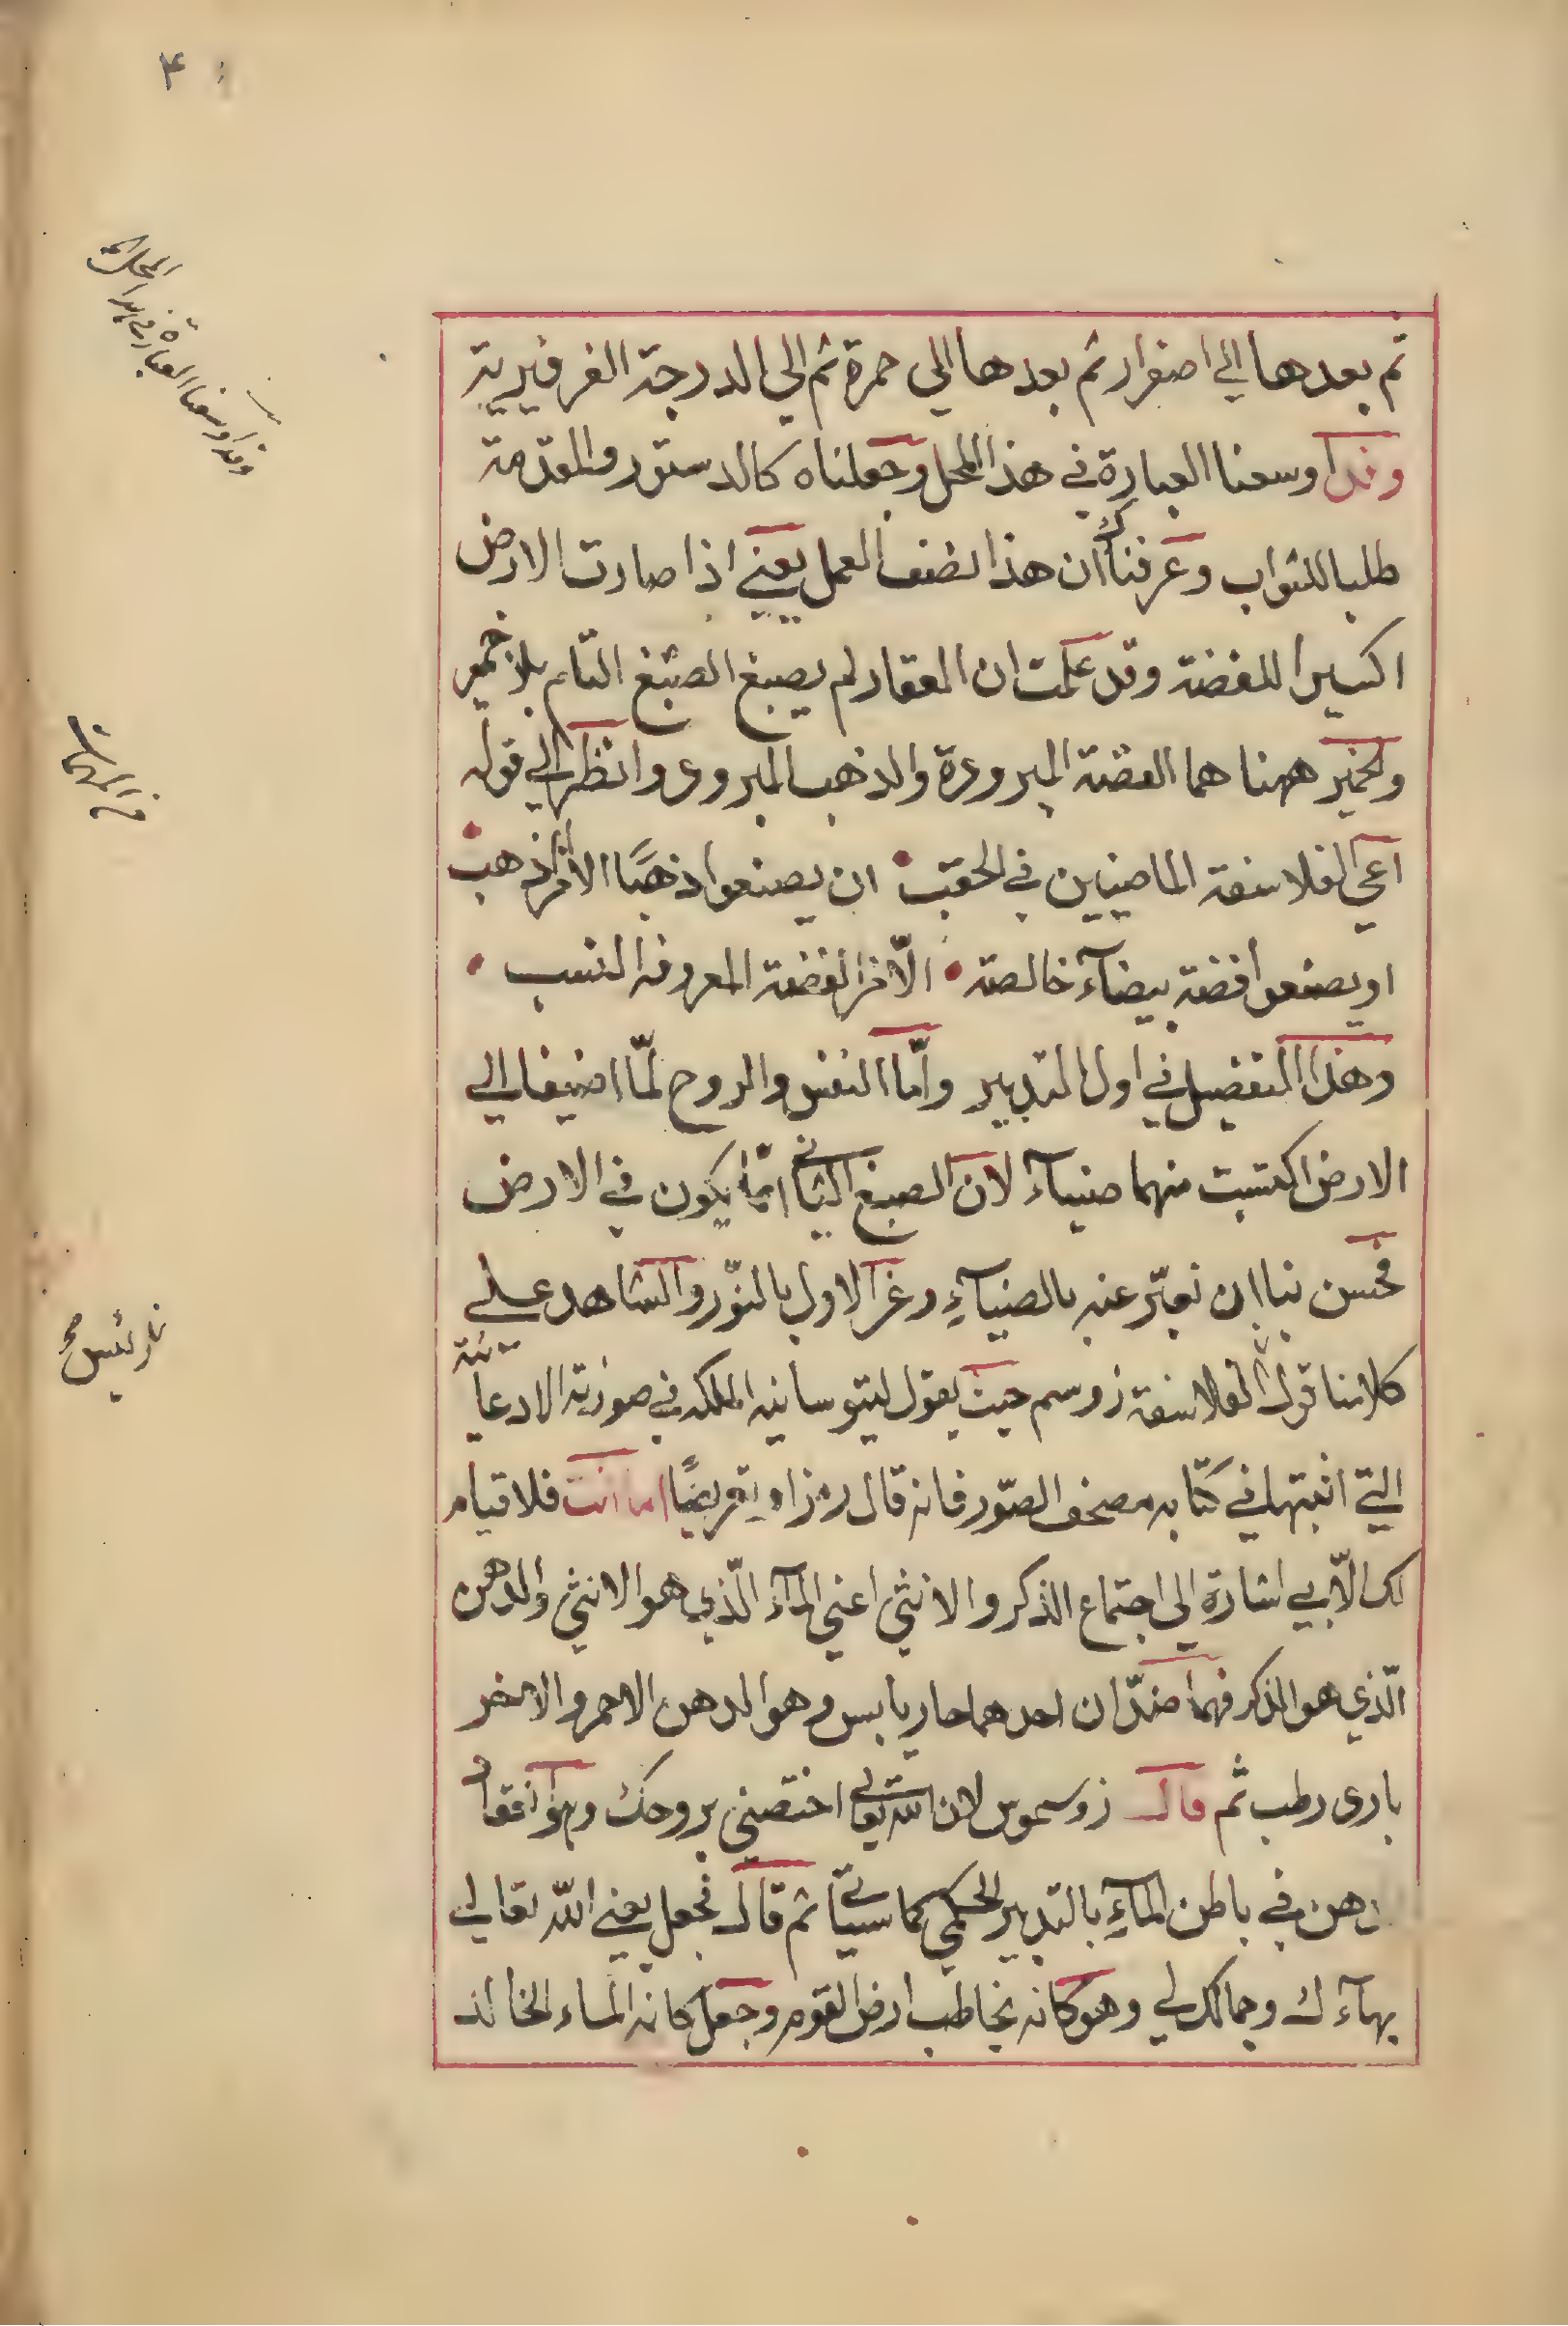 ۴
ثم بعدها الي اصفرار ثم بعدها الي حمرة ثم الي الدرجة الفرفيرية
وقد اوسعنا العبارة في هذا المحل وجعلناه كالدستور والمقدمة
طلبا للثواب وعرفناك ان هذا نصف العمل يعني اذا صارت الارض
اكسيرا للفضة وقد علمت ان العقار لم يصبغ الصبغ التام بلا خمير
والخمير ههنا هما الفضة المبرودة والذهب المبرود وانظر الي قوله
اعي الفلاسفة الماضيين في الحقب ان يصنعوا ذهبًا الا من ذهب
او يصنعوا فضة بيضآء خالصة الّا من الفضة المعروفه النسب
وهذا التفضيل في اول التدبير وامّا النفس والروح لمّا اضيفا الي
الارض اكتسبت منهما ضيآء لان الصبغ الثاني انما يكون في الارض
فحسن بنا ان نعبّر عنه بالضيآءِ وعن الاول بالنّور والشاهد علي
كلامنا قول الفلاسفة زوسم حيث يقول لثيوسانيه الملكه في صورته الادعائية
التي اثبتها في كتابه مصحف الصّور فانه قال رمزا وتعريضًا اما انت فلا قيام
لك الّا بي اشارة الي اجتماع الذكر والانثي اعني المآء الّذي هو الانثي والدهن
الّذي هو الذكر فهما ضدّان احدهما حار يابس وهو الدهن الاحمر والاخر
بارد رطب ثم قال زوسموس لان الله تعالي اختصني بروحك
دهن في باطن المآءِ بالتدبير الحكمي كما سيأتي ثم قال فجعل يعني الله تعالي
بهآءك وجمالك لي وهو كانه يخاطب ارض القوم وجعل كانه الماء الخالد
وقد اوسعنا العبارة في هذا المحل
من المهمات